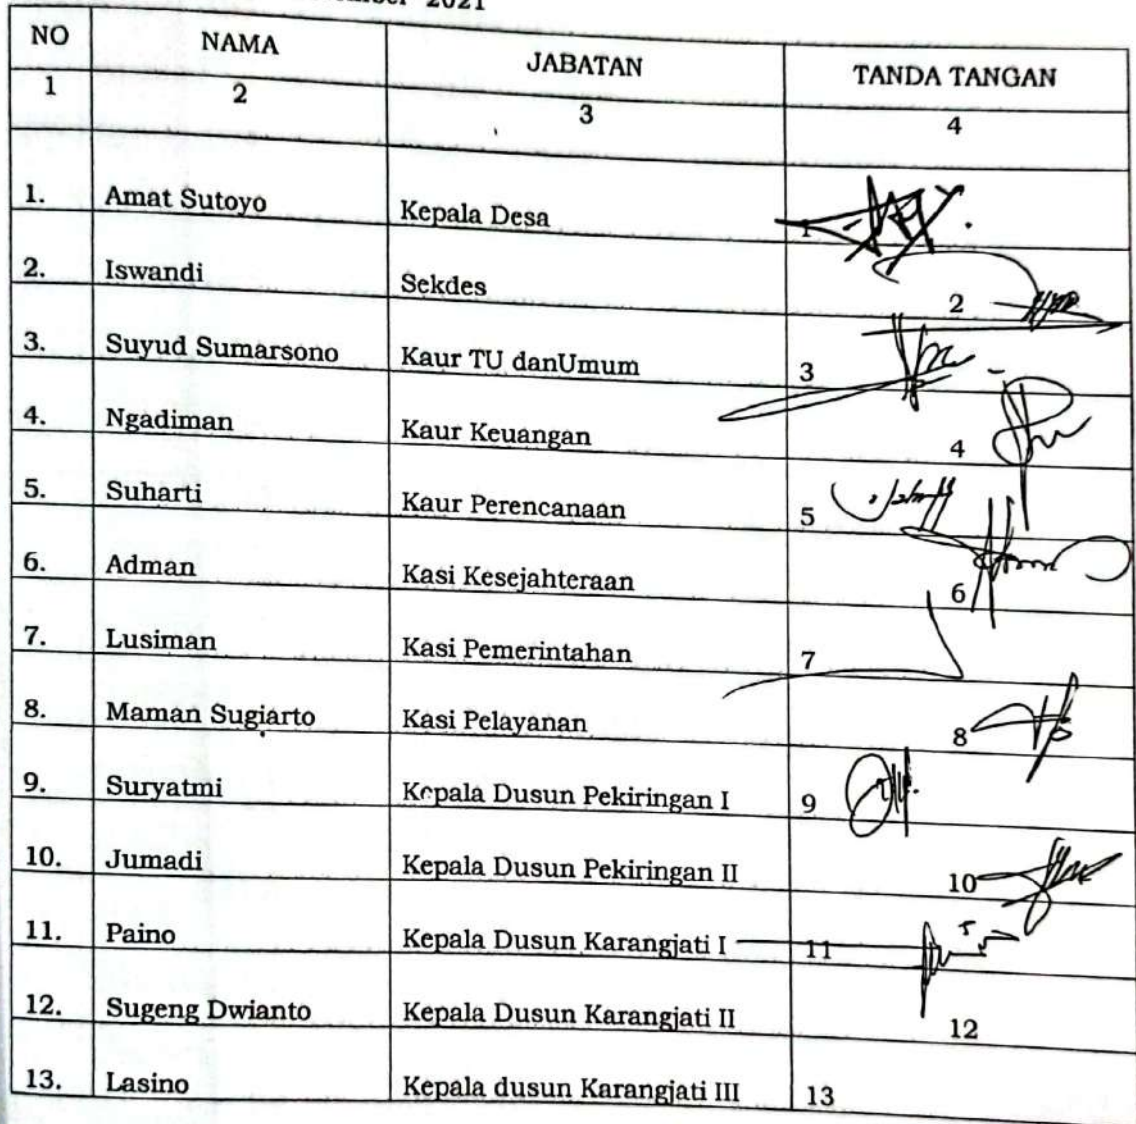 2021
NO NAMA JABATAN TANDA TANGAN
1 2 3 4
1. Amat Sutoyo Kepala Desa 1
2. Iswandi Sekdes 2
3. Suyud Sumarsono Kaur TU danUmum 3
4. Ngadiman Kaur Keuangan 4
5. Suharti Kaur Perencanaan 5
6. Adman Kasi Kesejahteraan 6
7. Lusiman Kasi Pemerintahan 7
8. Maman Sugiarto Kasi Pelayanan 8
9. Suryatmi Kepala Dusun Pekiringan I 9
10. Jumadi Kepala Dusun Pekiringan II 10
11. Paino Kepala Dusun Karangjati I 11
12. Sugeng Dwianto Kepala Dusun Karangjati II 12
13. Lasino Kepala dusun Karangjati III 13